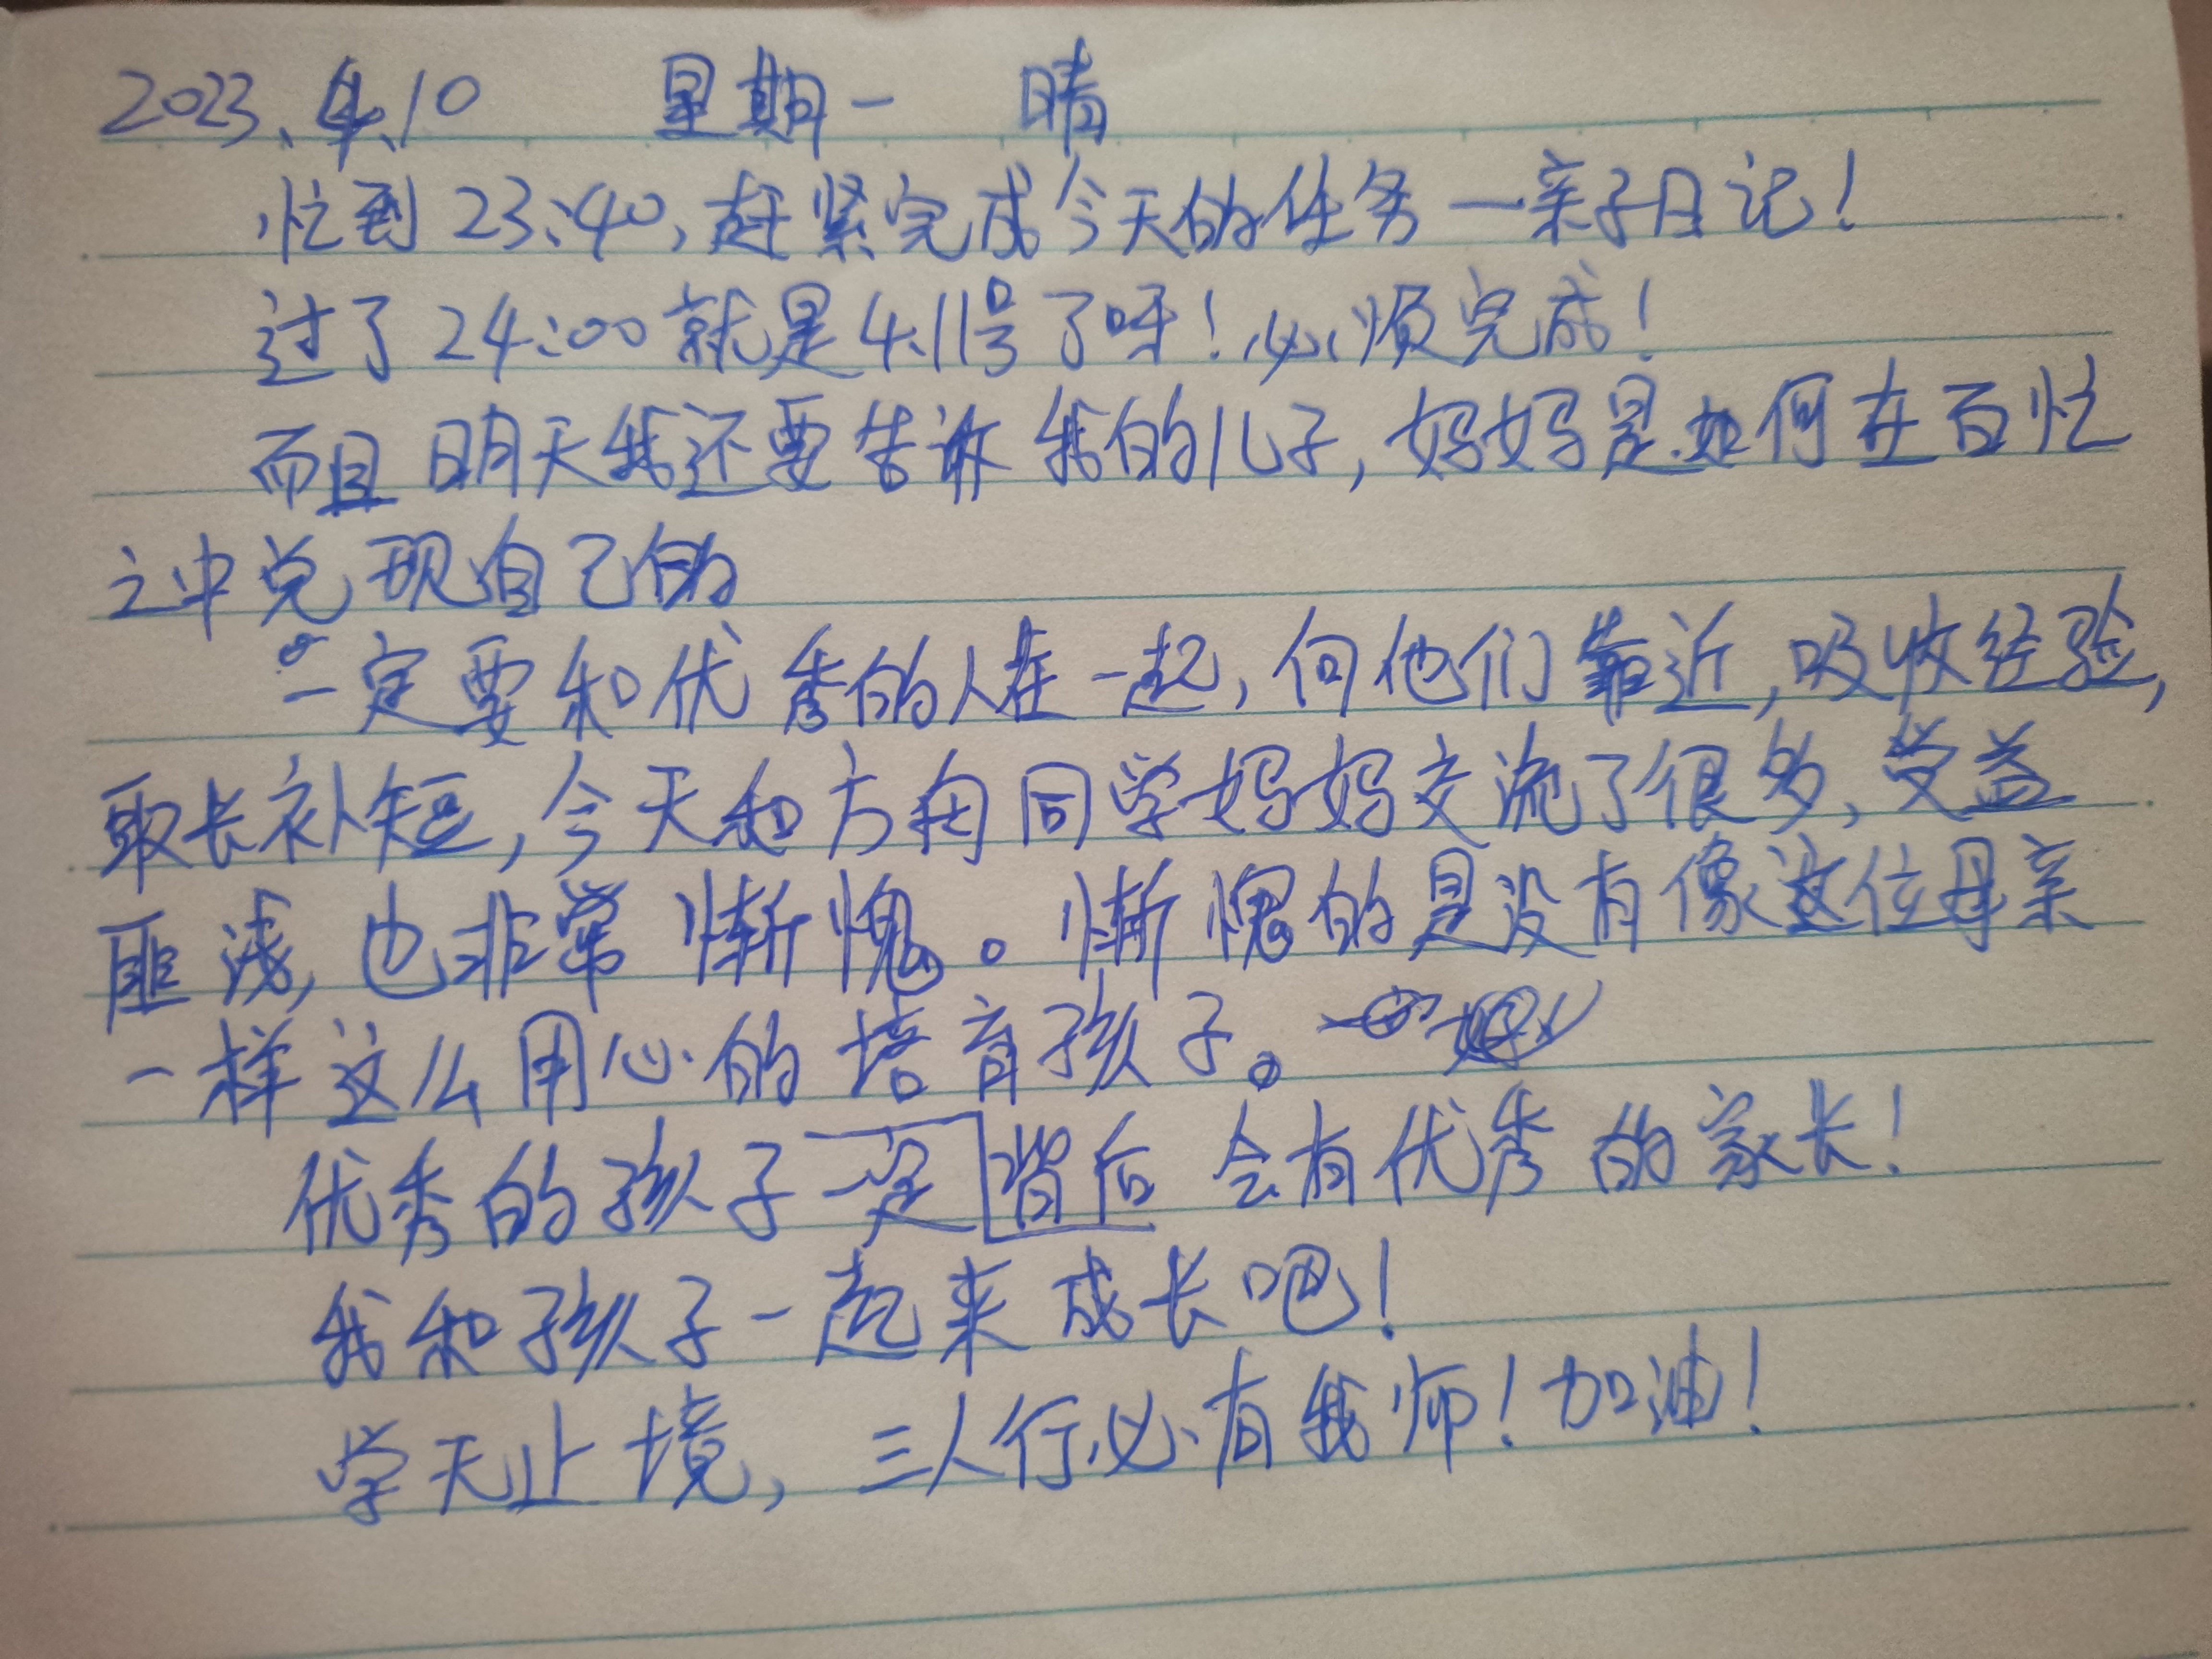 2023.4.10 星期一 晴
忙到23:40,赶紧完成今天的任务—亲子日记!
过了24:00就是4.11号了呀!必须完成!
而且明天我还要告诉我的儿子,妈妈是如何在百忙
之中兑现自己的
一定要和优秀的人在一起,向他们靠近,吸收经验,
取长补短,今天和方舟同学妈妈交流了很多,受益
匪浅,也非常惭愧。惭愧的是没有像这位母亲
一样这么用心的培育孩子。
优秀的孩子一定背后会有优秀的家长!
我和孩子一起来成长吧!
学无止境,三人行必有我师!加油!